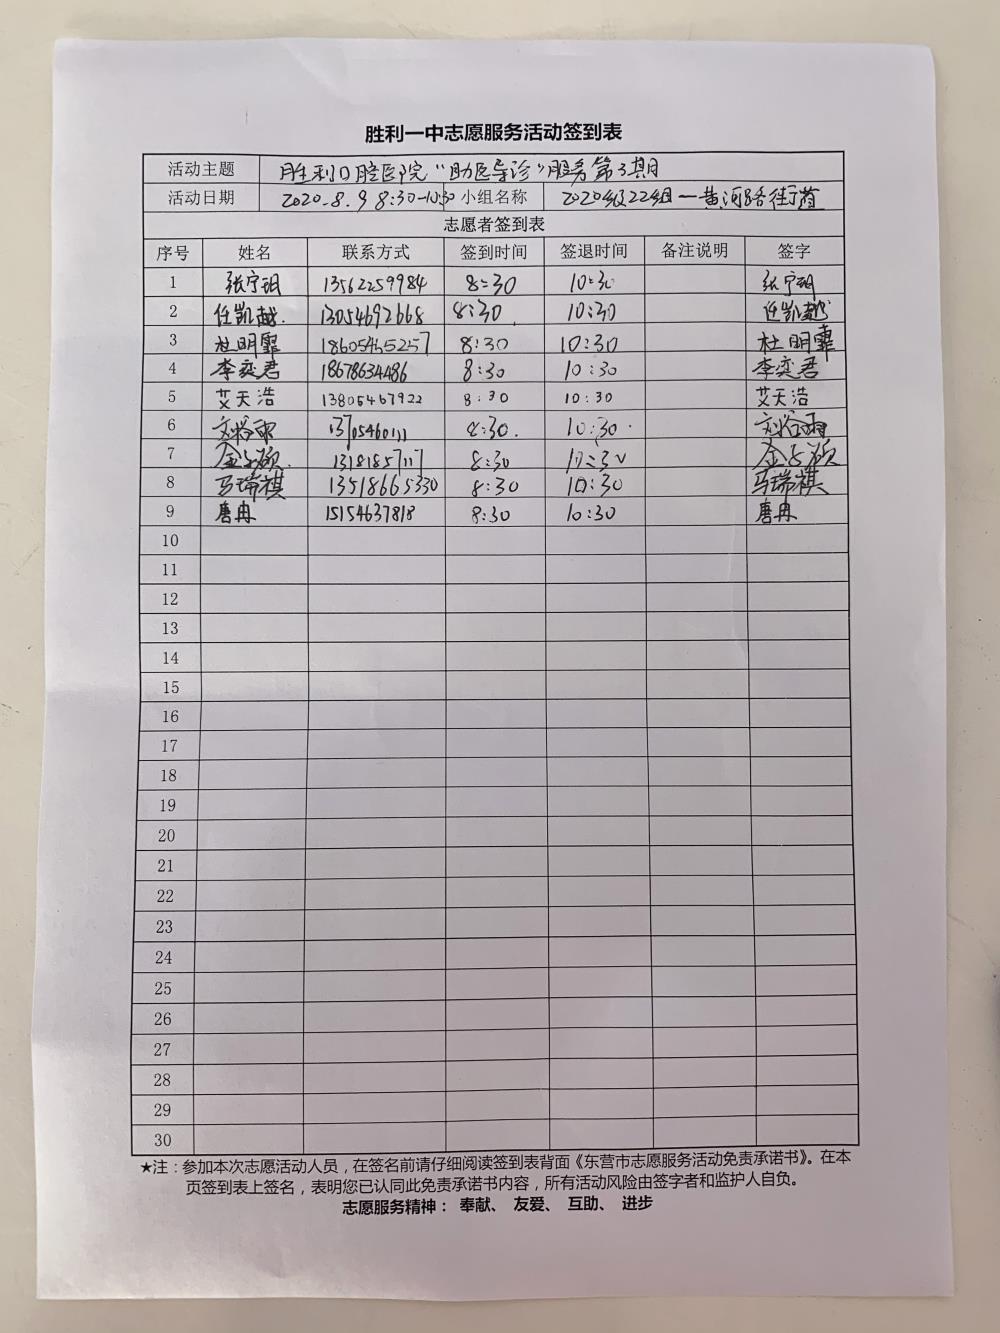 胜利一中志愿服务活动签到表
活动主题 胜利口腔医院“助医导诊”服务第3期
活动日期 2020.8.9 8:30-10:30 小组名称 2020级22组—黄河路街道
志愿者签到表
序号 姓名 联系方式 签到时间 签退时间 备注说明 签字
1 张宁玥 13562259984 8:30 10:30 张宁玥
2 任凯越. 13054692668 8:30. 10:30 任凯越
3 杜明霏 18605465257 8:30 10:30 杜明霏
4 李奕君 18678634486 8:30 10:30 李奕君
5 艾天浩 13805467922 8:30 10:30 艾天浩
6 刘谷雨 8:30. 10:30. 刘谷雨
7 金子硕. 13181857117 8:30 10:30 金子硕
8 马瑞祺 13518665330 8:30 10:30 马瑞祺
9 唐冉 15154637818 8:30 10:30 唐冉
10
11
12
13
14
15
16
17
18
19
20
21
22
23
24
25
26
27
28
29
30
★注：参加本次志愿活动人员，在签名前请仔细阅读签到表背面《东营市志愿服务活动免责承诺书》。在本
页签到表上签名，表明您已认同此免责承诺书内容，所有活动风险由签字者和监护人自负。
志愿服务精神： 奉献、 友爱、 互助、 进步